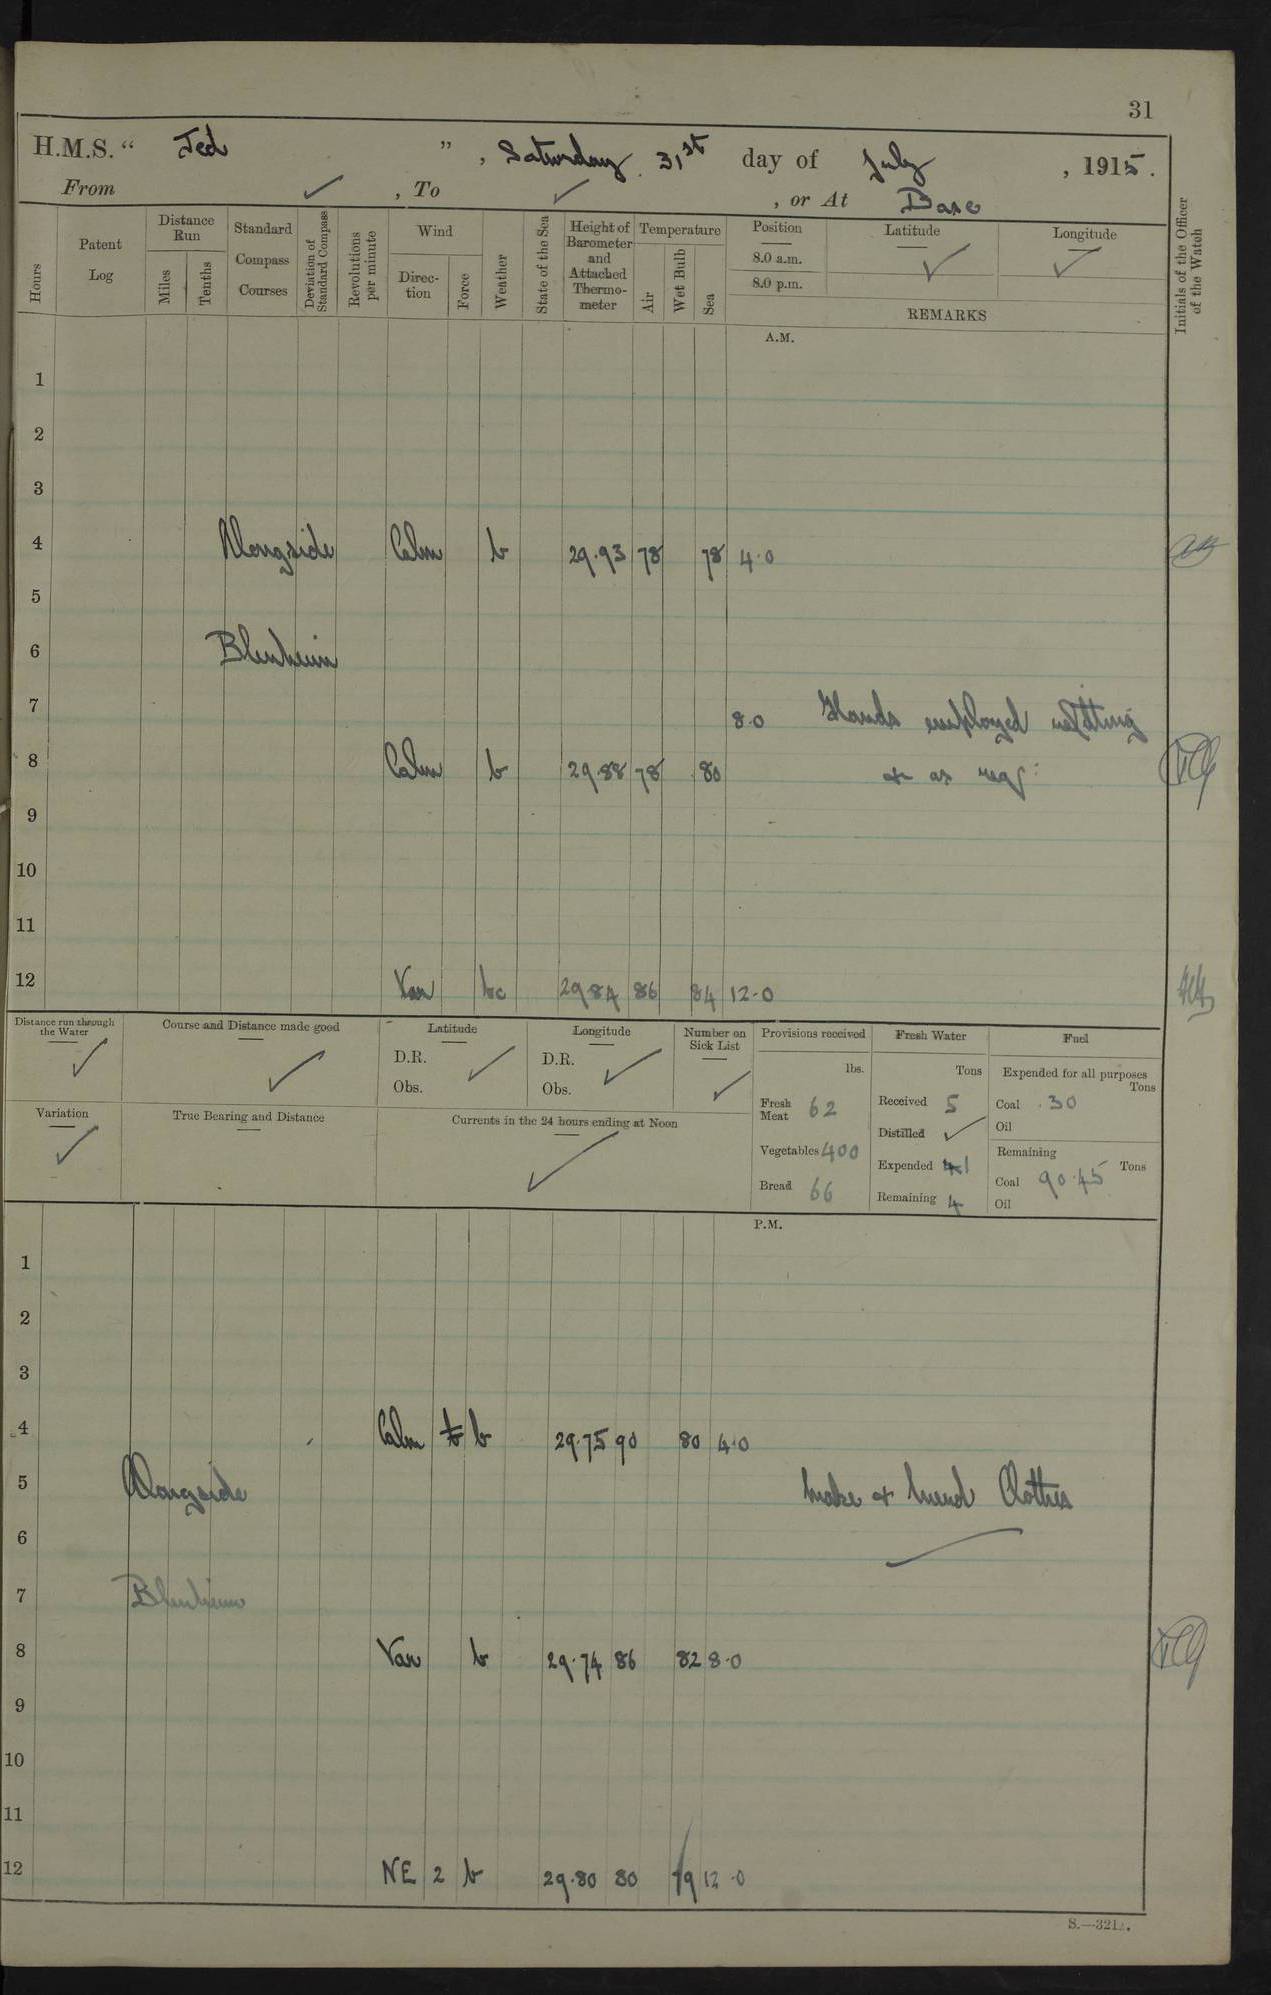 31
H.M.S. "Jed", Saturday 31st day of July, 1915.
From ✓, To ✓, or At Base
Hours
Patent Log
Distance Run
Miles
Tenths
Standard Compass Courses
Deviation of Standard Compass
Revolutions per minute
Wind
Direction
Force
Weather
State of the Sea
Height of Barometer and Attached Thermometer
Temperature
Air
Wet Bulb
Sea
Position
8.0 a.m.
8.0 p.m.
Latitude ✓
Longitude ✓
REMARKS
Initials of the Officer of the Watch
A.M.
1
2
3
4 Alongside Calm b 29.93 78 78 4.0
5
6 Blenheim
7
8.0 Hands employed refitting
8 Calm b 29.88 78 80 & as req:
9
10
11
12 Var bc 29 84 86 84 12.0
Distance run through the Water ✓
Course and Distance made good ✓
Latitude
D.R.
Obs. ✓
Longitude
D.R.
Obs. ✓
Number on Sick List ✓
Variation ✓
True Bearing and Distance
Currents in the 24 hours ending at Noon ✓
Provisions received
lbs.
Fresh Meat 62
Vegetables 400
Bread 66
Fresh Water
Tons
Received 5
Distilled ✓
Expended 1
Remaining 4
Fuel
Expended for all purposes
Tons
Coal .30
Oil
Remaining
Tons
Coal 90.45
Oil
P.M.
1
2
3
4 Calm b 29.75 90 80 4.0
5 Alongside Make & Mend Clothes
6
7 Blenheim
8 Var b 29.74 86 82 8.0
9
10
11
12 NE 2 b 29.80 80 79 12.0